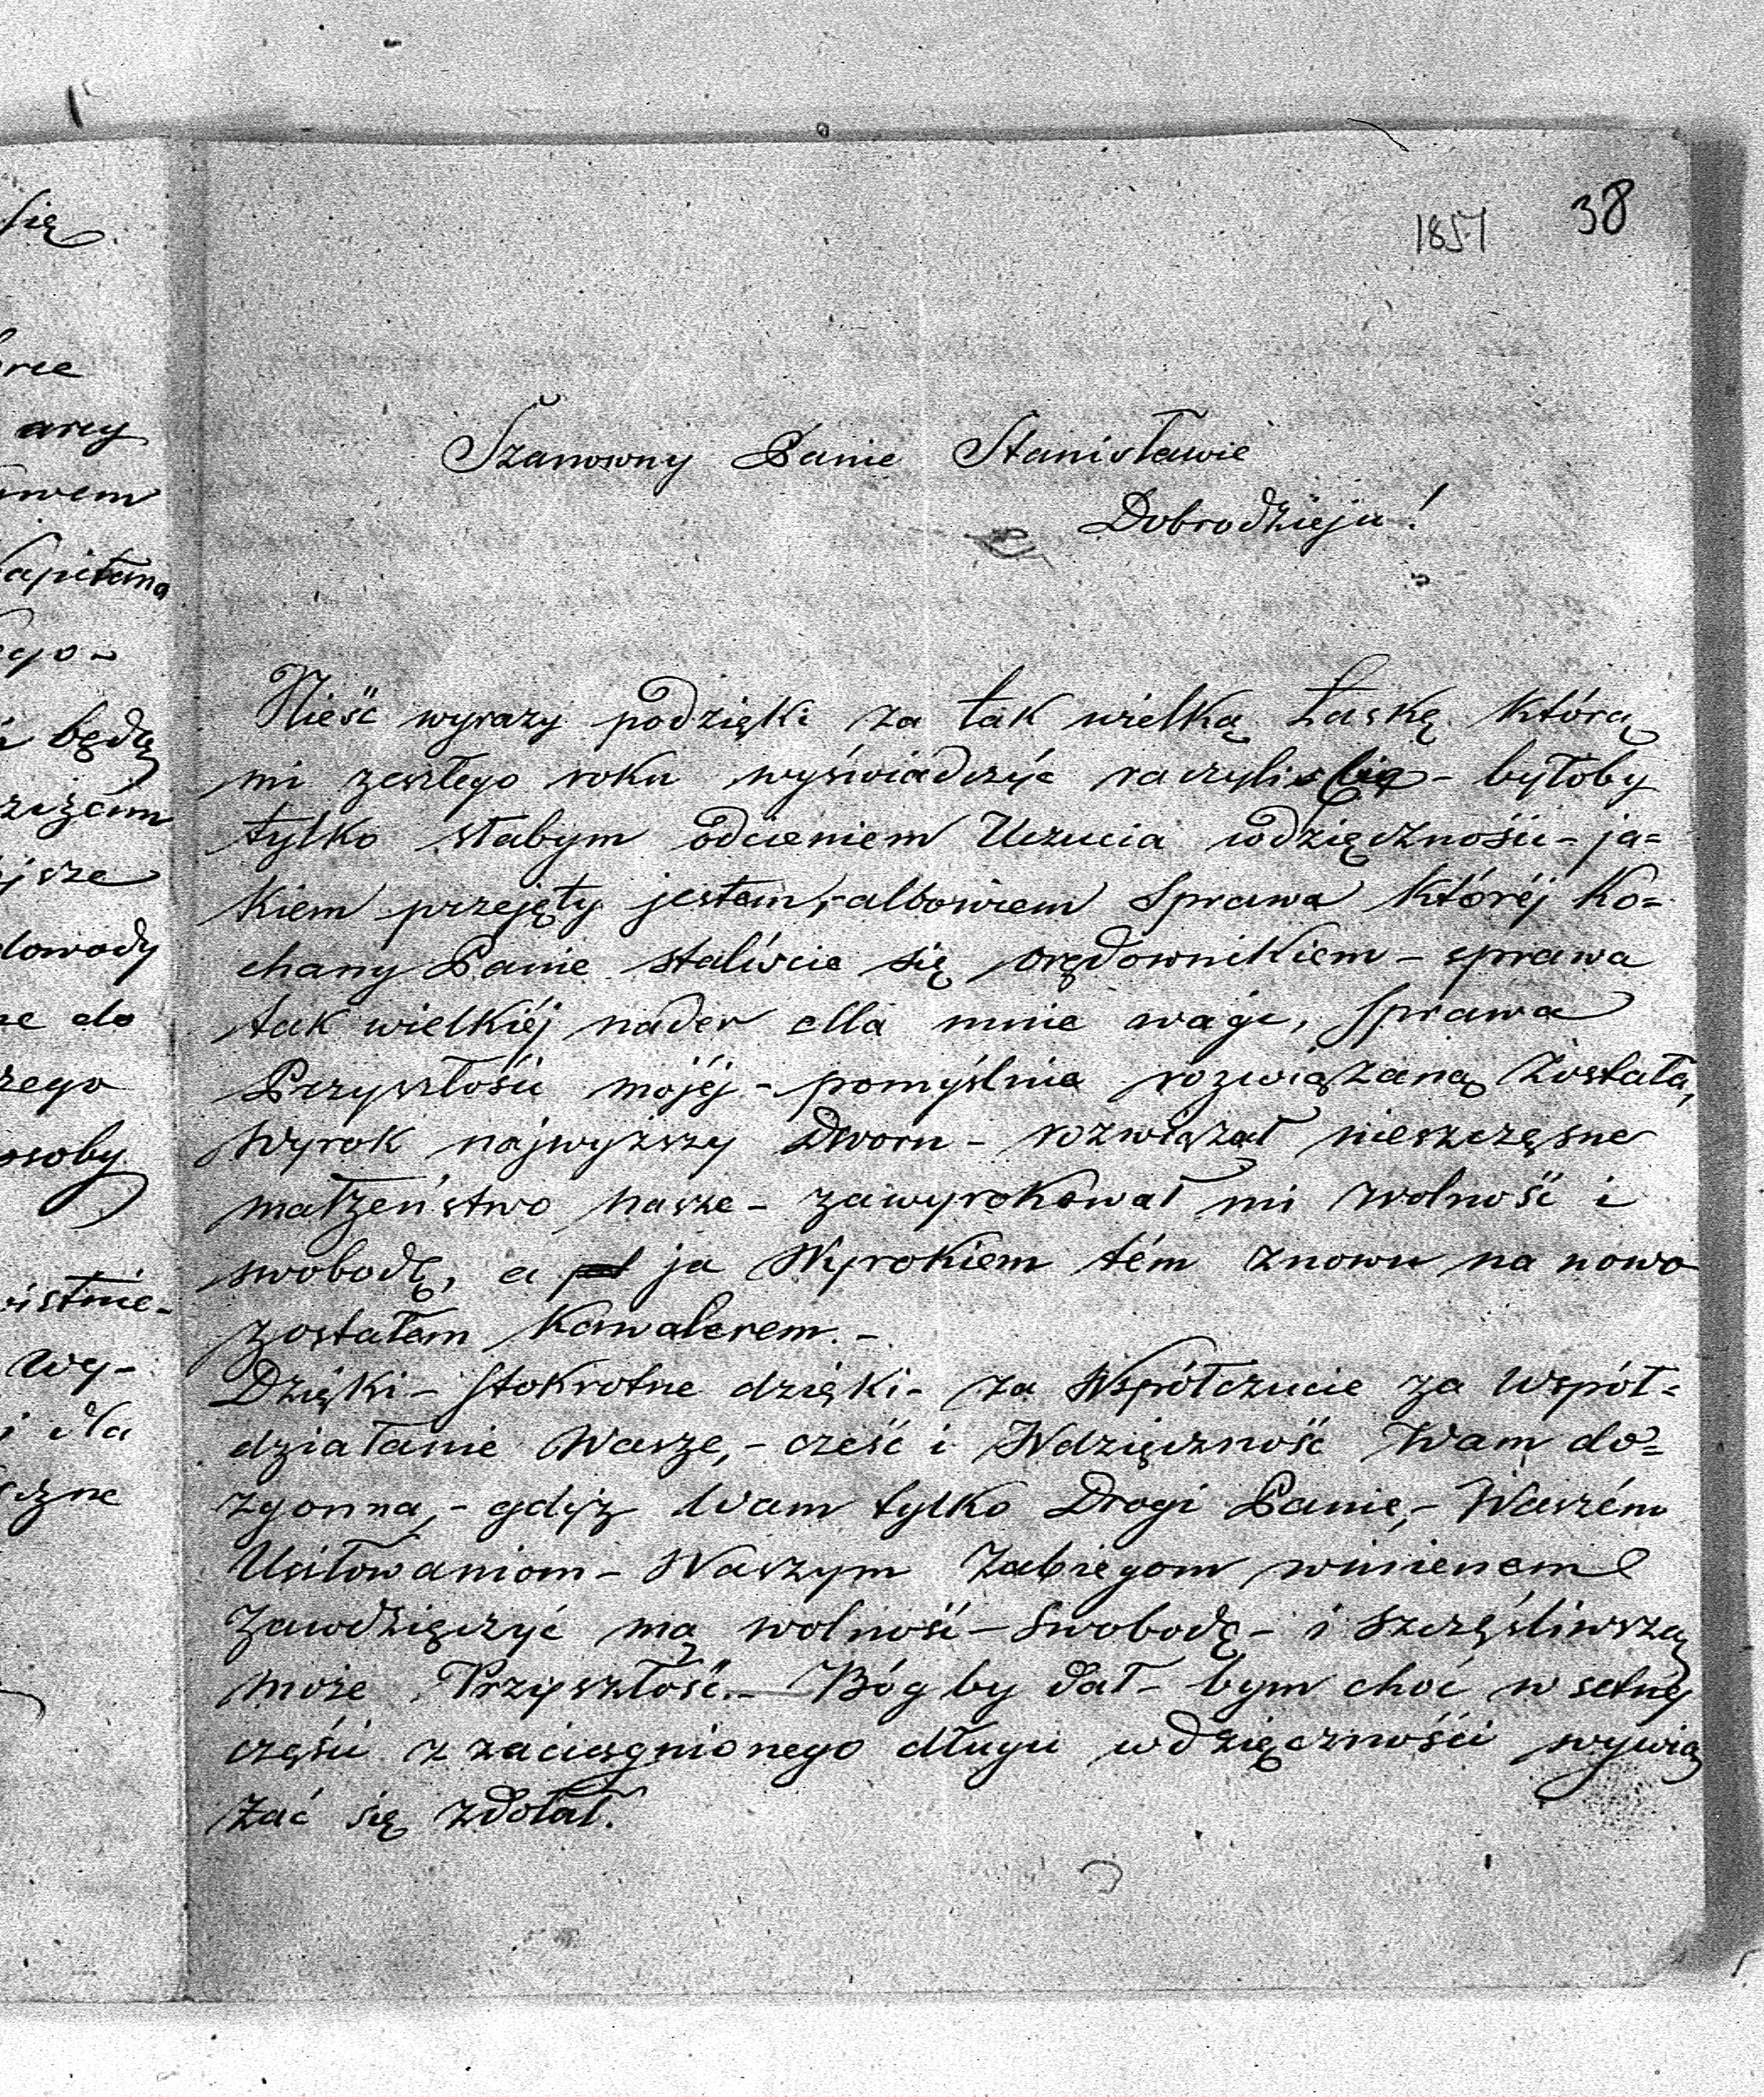 38
1857
Szanowny Panie Stanisławie
Dobrodzieju!
Nieść wyrazy podzięki za tak wielką Łaskę którą
mi zeszłego roku wyświadczyć raczyliście - byłoby
tylko słabym odcieniem Uczucia wdzięczności - ja=
kiem przejęty jestem, albowiem Sprawa któréj Ko=
chany Panie staliście się orędownikiem - sprawa
tak wielkiéj nader dla mnie wagi, Sprawa
Przyszłości mojéj - pomyślnie rozwiązaną Została,
Wyrok najwyższy Dworu - rozwiązał nieszczęsne
małżeństwo nasze - zawyrokował mi wolność i
swobodę, a ja Wyrokiem tém znowu na nowo
zostałem Kawalerem. -
Dzięki - Stokrotne dzięki - za Współczucie za Współ=
działanie Wasze, - cześć i Wdzięczność Wam do=
zgonna, - gdyż Wam tylko Drogi Panie, - Waszém
Usiłowaniom - Waszym Zabiegom winienem
Zawdzięczyć mą wolność - Swobodę - i Szczęśliwszą
może Przyszłość. - Bóg by dał - bym choć w setnéj
części z zaciągnionego długu wdzięczności wywią
zać się zdołał.
się
arcy
Kapitana
będą
dowody
do
osoby
wy-
dla